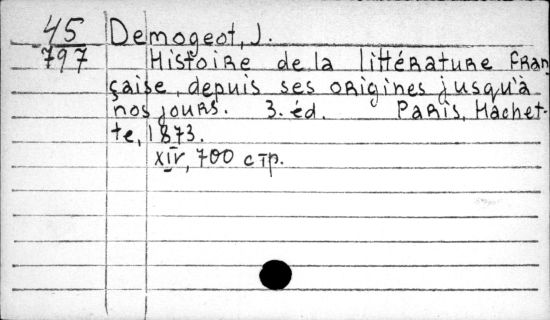 45 Demogeot, J.
797 Histoire de la littérature fran
çaise, depuis ses origines jusqu'à
nos jours. 3. éd. Paris, Hachet-
te, 1873.
XIV, 700 стр.